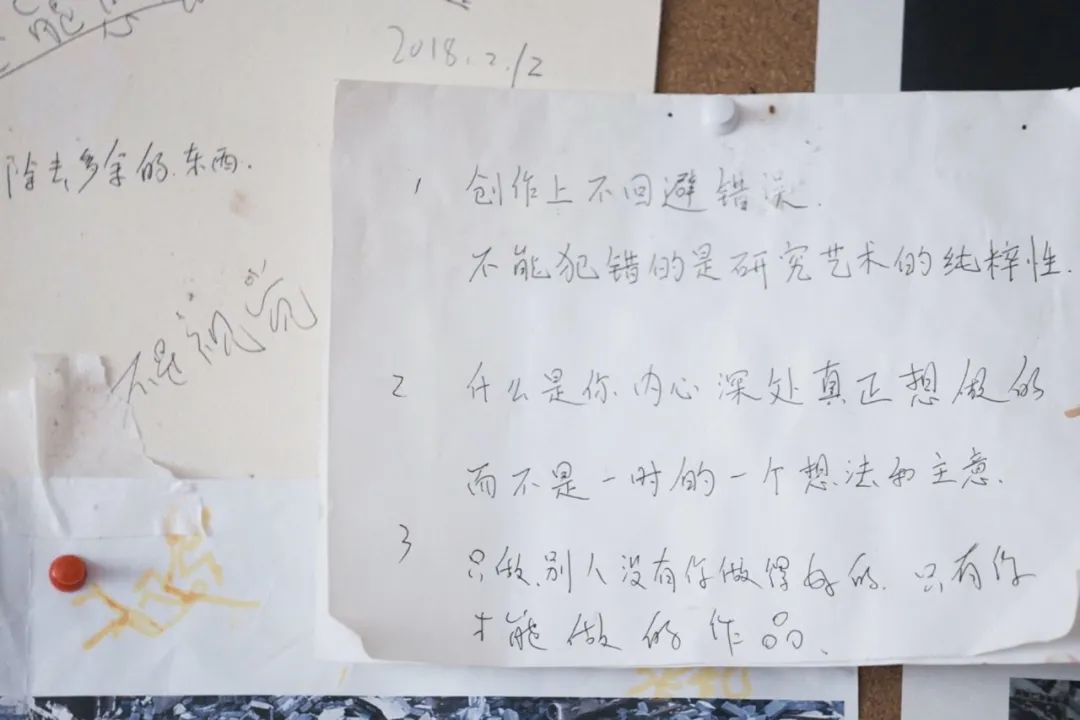 2018.2.12
除去多余的东西.
不是视觉的
1 创作上不回避错误.
不能犯错的是研究艺术的纯粹性.
2 什么是你内心深处真正想做的
而不是一时的一个想法和主意.
3 只做别人没有你做得好的.只有你
才能做的作品.